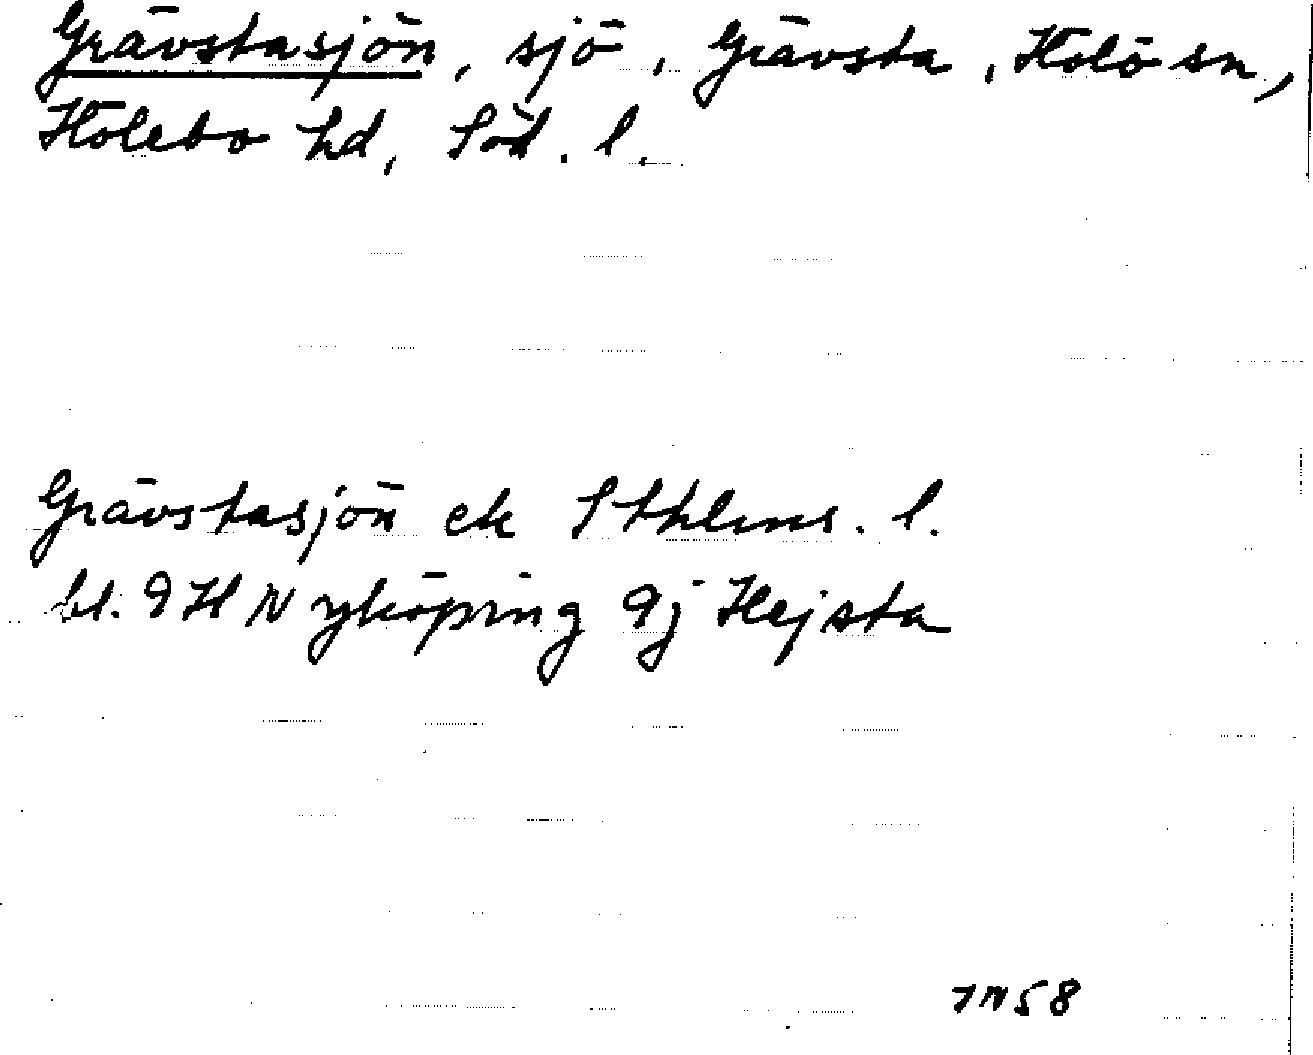 Grävstasjön, sjö, Grävsta, Hölö sn,
Hölebo hd, Söd. l.
Grävstasjön ek Sthlms. l.
bl. 9H Nyköping 9j Hejsta
7N58